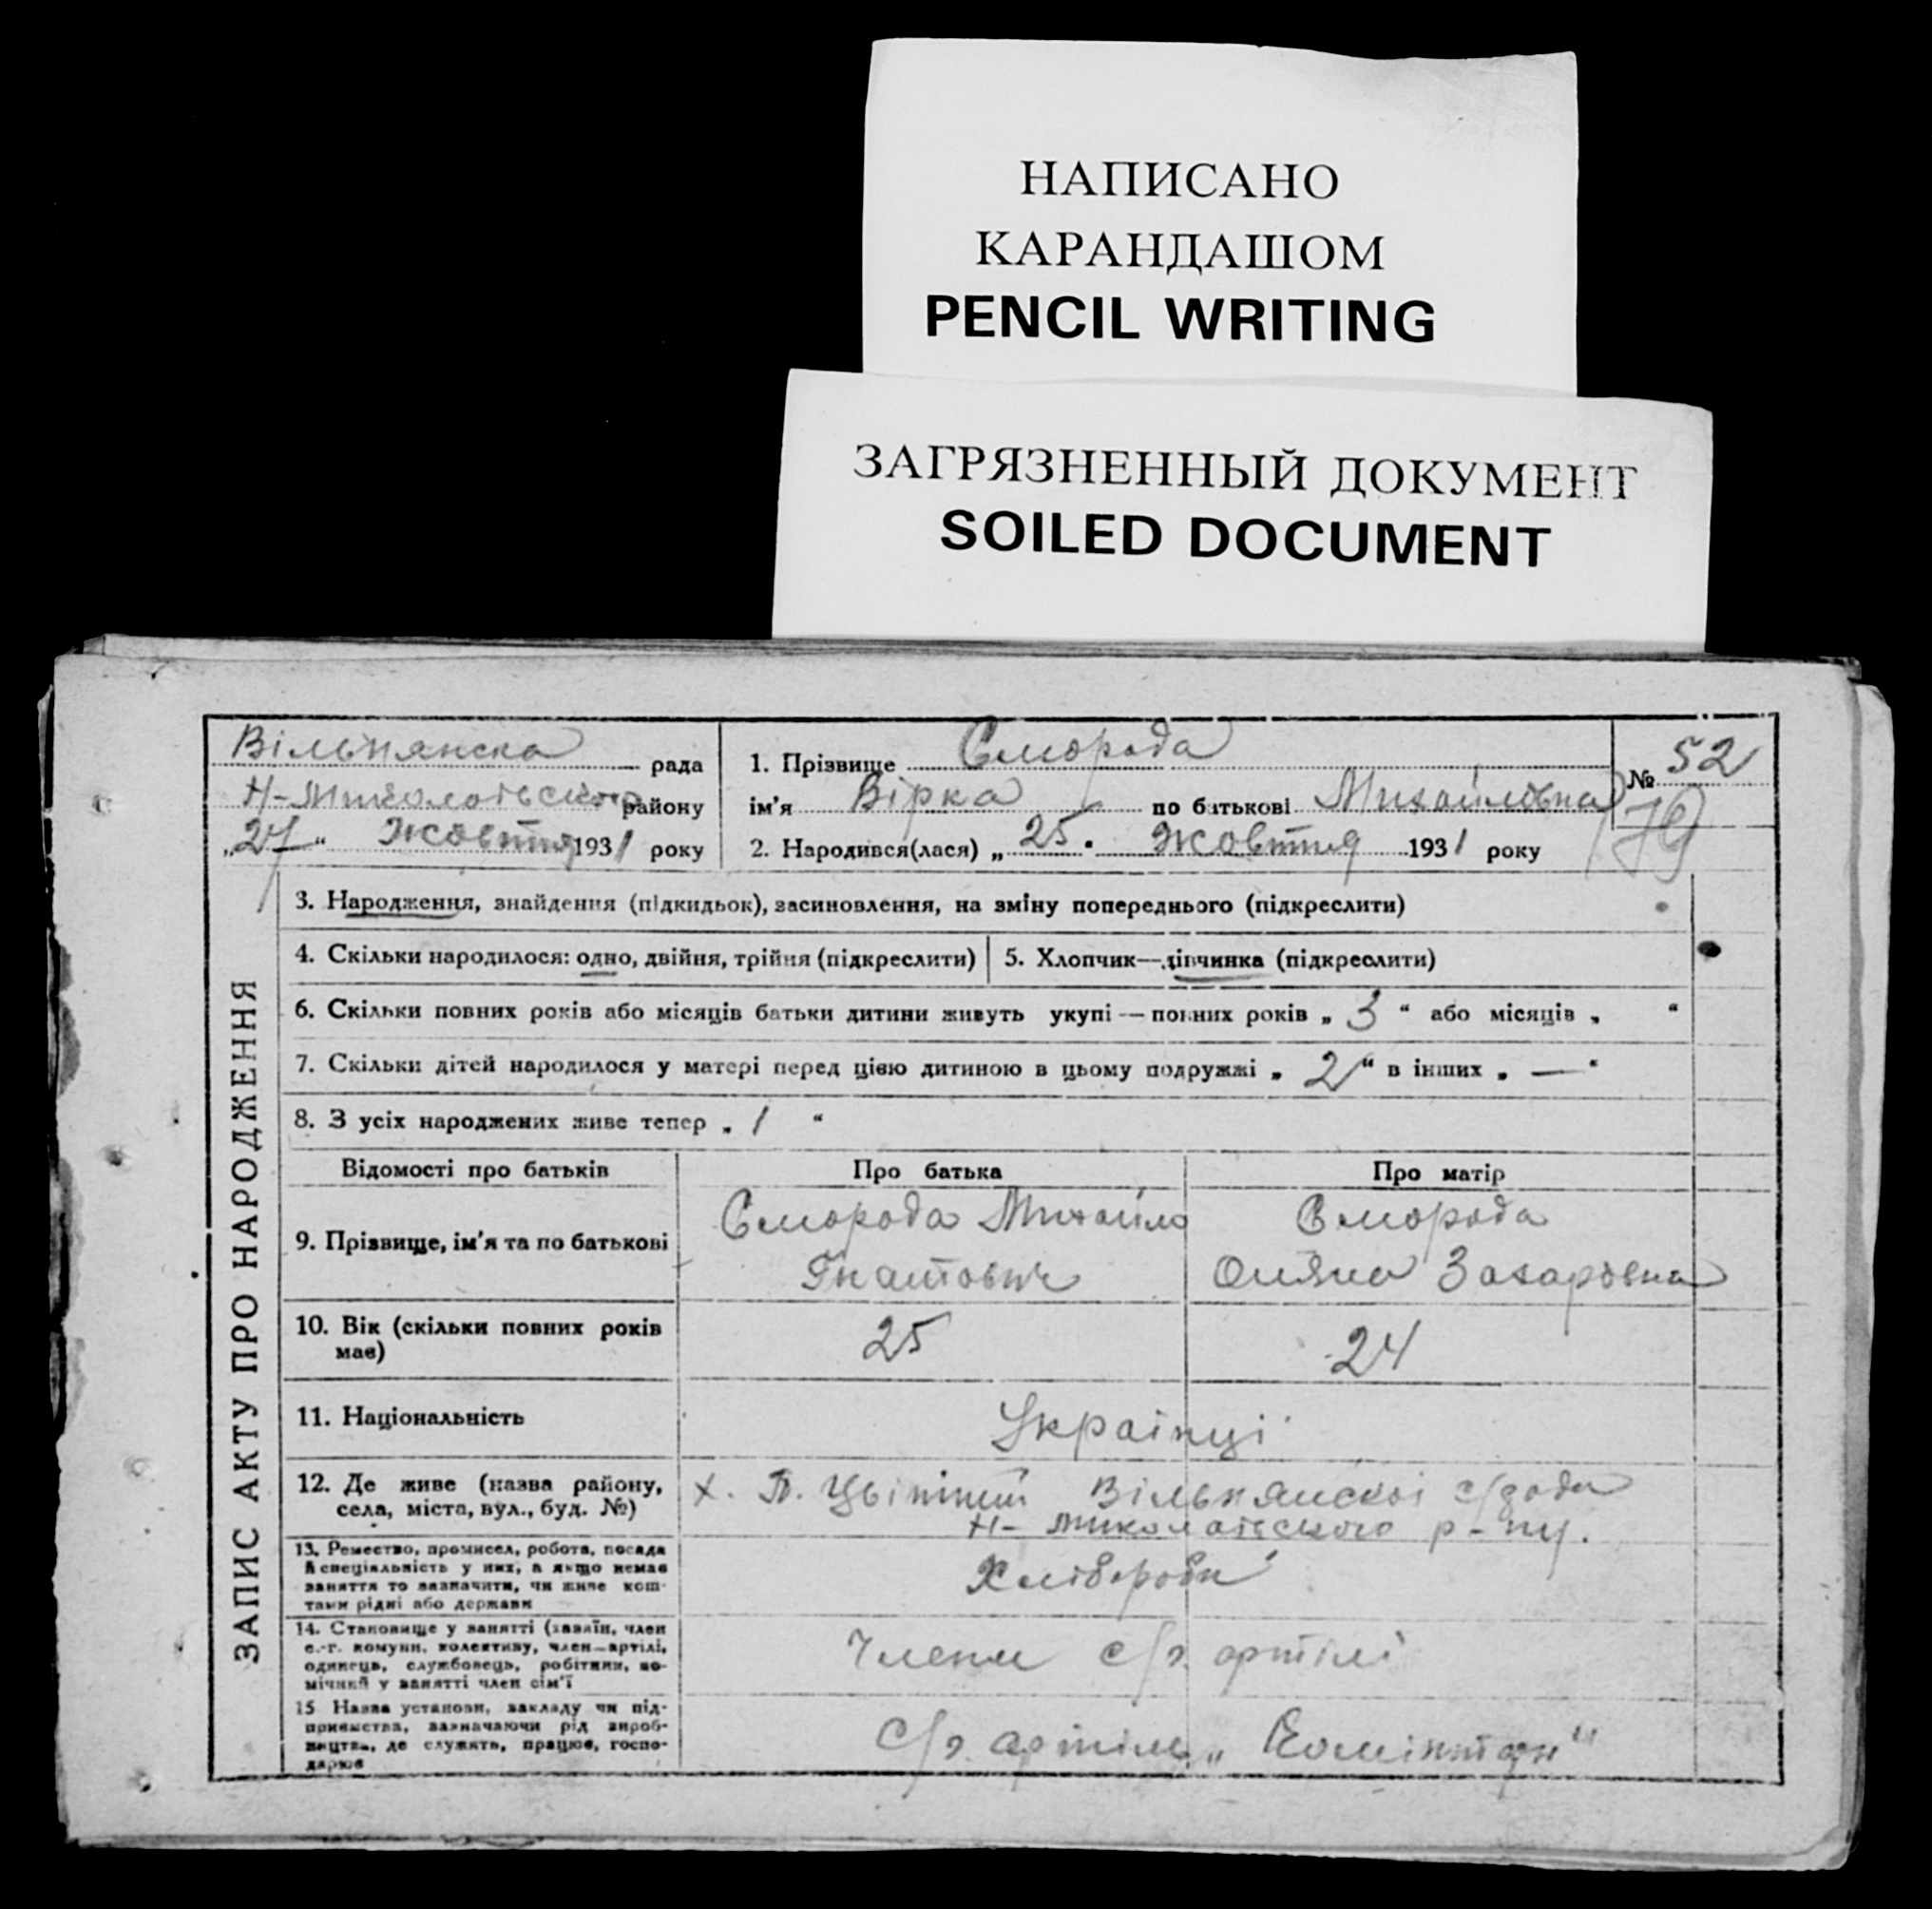 НАПИСАНО
КАРАНДАШОМ
PENCIL WRITING
ЗАГРЯЗНЕННЫЙ ДОКУМЕНТ
SOILED DOCUMENT
Вільнянска рада
Н-Миколаївського району
„27“ Жовтня 1931 року
1. Прізвище Сморода
ім'я Вірка по батькові Михайлівна
2. Народився(лася) „25. Жовтня 1931 року
№ 52
ЗАПИС АКТУ ПРО НАРОДЖЕННЯ
3. Народження, знайдення (підкидьок), засиновлення, на зміну попереднього (підкреслити)
4. Скільки народилося: одно, двійня, трійня (підкреслити)
5. Хлопчик—дівчинка (підкреслити)
6. Скільки повних років або місяців батьки дитини живуть укупі — повних років „ 3 “ або місяців „ “
7. Скільки дітей народилося у матері перед цією дитиною в цьому подружжі „ 2 “ в інших „ — “
8. З усіх народжених живе тепер „ 1 “
Відомості про батьків
Про батька
Про матір
9. Прізвище, ім'я та по батькові
Сморода Михайло
Гнатович
Сморода
Захаровна
10. Вік (скільки повних років
має)
25
24
11. Національність
Українці
12. Де живе (назва району,
села, міста, вул., буд. №)
х. П. Вільнянскої с/ради
Н-Миколаївського р-ну.
13. Ремество, промисел, робота, посада
й спеціяльність у них, а якщо немає
заняття то зазначити, чи живе кош-
тами рідні або держави
Хлібороби
14. Становище у занятті (хазяїн, член
с.-г. комуни, колективу, член—артілі,
одинець, службовець, робітник, по-
мічний у занятті член сім'ї
Члени с/г. артілі
15 Назва установи, закладу чи під-
приємства, зазначаючи рід вироб-
ництва, де служить, працює, госпо-
дарює
С/г. артіль „Комінтерн“